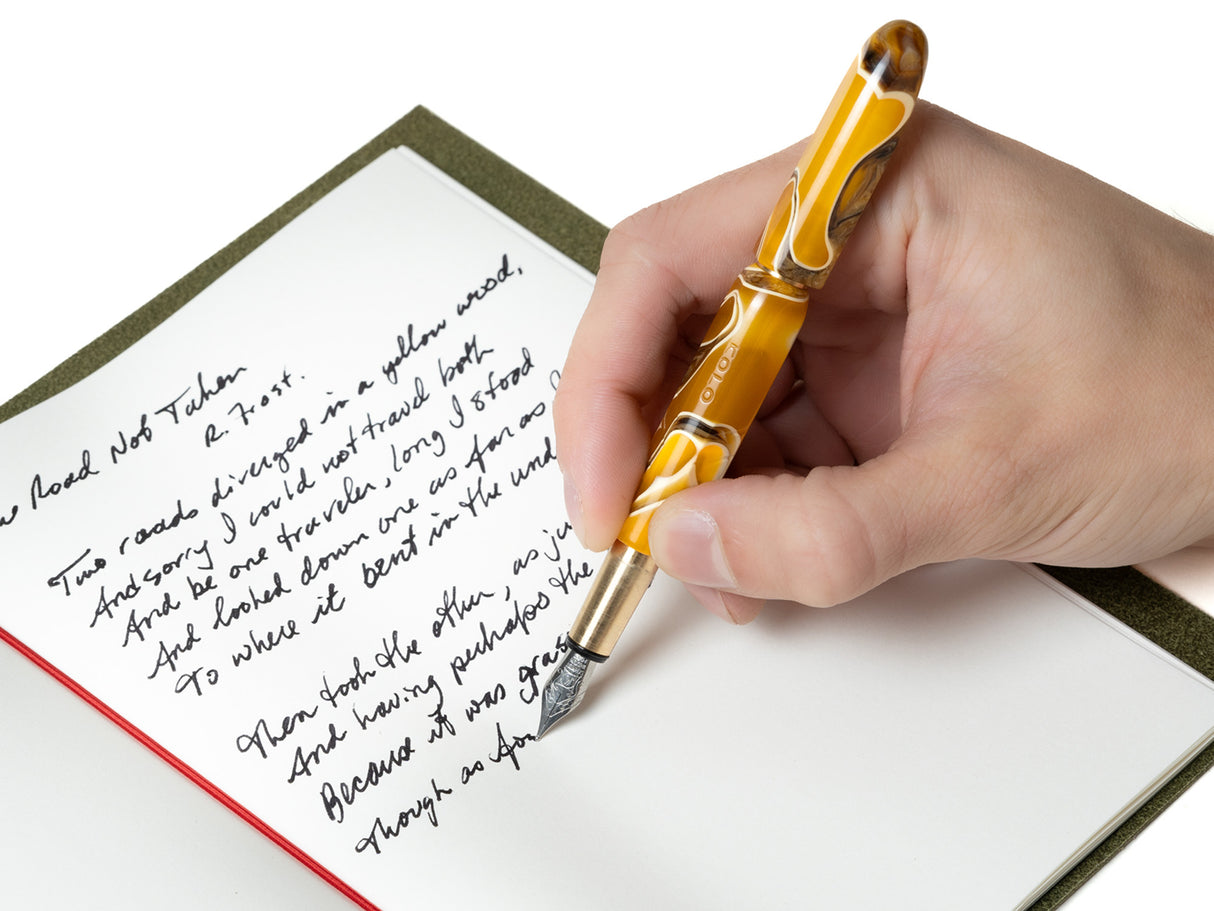 Road Not Taken
R. Frost.
Two roads diverged in a yellow wood,
And sorry I could not travel both
And be one traveler, long I stood
And looked down one as far as
To where it bent in the und
Then took the other, as ju
And having perhaps the
Because it was gras
Though as for
YOLO